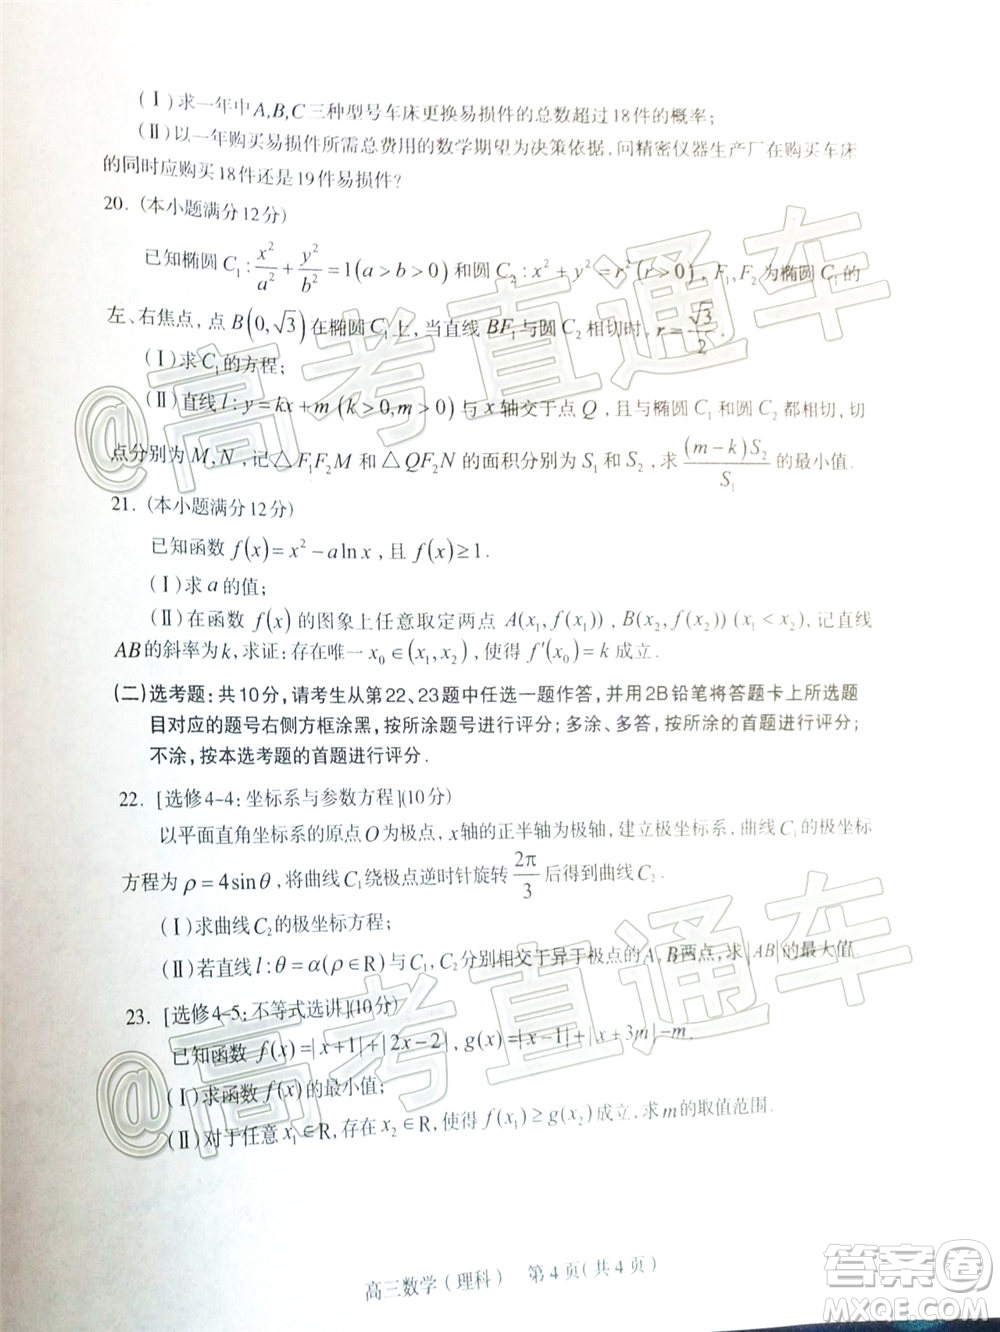 (Ⅰ)求一年中A,B,C三种型号车床更换易损件的总数超过18件的概率;
(Ⅱ)以一年购买易损件所需总费用的数学期望为决策依据,问精密仪器生产厂在购买车床
的同时应购买18件还是19件易损件?
20. (本小题满分12分)
已知椭圆 C₁: x²/a² + y²/b² = 1(a>b>0) 和圆 C₂: x²+y²=r²(r>0), F₁,F₂ 为椭圆 C₁ 的
左、右焦点, 点 B(0,√3) 在椭圆 C₁ 上, 当直线 BF₁ 与圆 C₂ 相切时, r=√3/2.
(Ⅰ)求 C₁ 的方程;
(Ⅱ)直线 l: y=kx+m (k>0,m>0) 与 x 轴交于点 Q, 且与椭圆 C₁ 和圆 C₂ 都相切, 切
点分别为 M,N, 记△F₁F₂M 和△QF₂N 的面积分别为 S₁ 和 S₂, 求 (m-k)S₂/S₁ 的最小值.
21. (本小题满分12分)
已知函数 f(x)=x²-alnx, 且 f(x)≥1.
(Ⅰ)求 a 的值;
(Ⅱ)在函数 f(x) 的图象上任意取定两点 A(x₁,f(x₁)), B(x₂,f(x₂)) (x₁<x₂), 记直线
AB的斜率为k, 求证: 存在唯一 x₀∈(x₁,x₂), 使得 f′(x₀)=k 成立.
(二)选考题:共10分,请考生从第22、23题中任选一题作答,并用2B铅笔将答题卡上所选题
目对应的题号右侧方框涂黑,按所涂题号进行评分;多涂、多答,按所涂的首题进行评分;
不涂,按本选考题的首题进行评分.
22. [选修4-4:坐标系与参数方程](10分)
以平面直角坐标系的原点O为极点,x轴的正半轴为极轴,建立极坐标系,曲线C₁的极坐标
方程为 ρ=4sinθ, 将曲线C₁绕极点逆时针旋转 2π/3 后得到曲线C₂.
(Ⅰ)求曲线C₂的极坐标方程;
(Ⅱ)若直线 l:θ=α(ρ∈R)与C₁,C₂分别相交于异于极点的A,B两点,求|AB|的最大值.
23. [选修4-5:不等式选讲](10分)
已知函数 f(x)=|x+1|+|2x-2|, g(x)=|x-1|+|x+3m|-m.
(Ⅰ)求函数 f(x) 的最小值;
(Ⅱ)对于任意 x₁∈R, 存在 x₂∈R, 使得 f(x₁)≥g(x₂)成立, 求m的取值范围.
高三数学(理科) 第4页(共4页)
@高考直通车
@高考直通车
答案圈
MXQE.COM